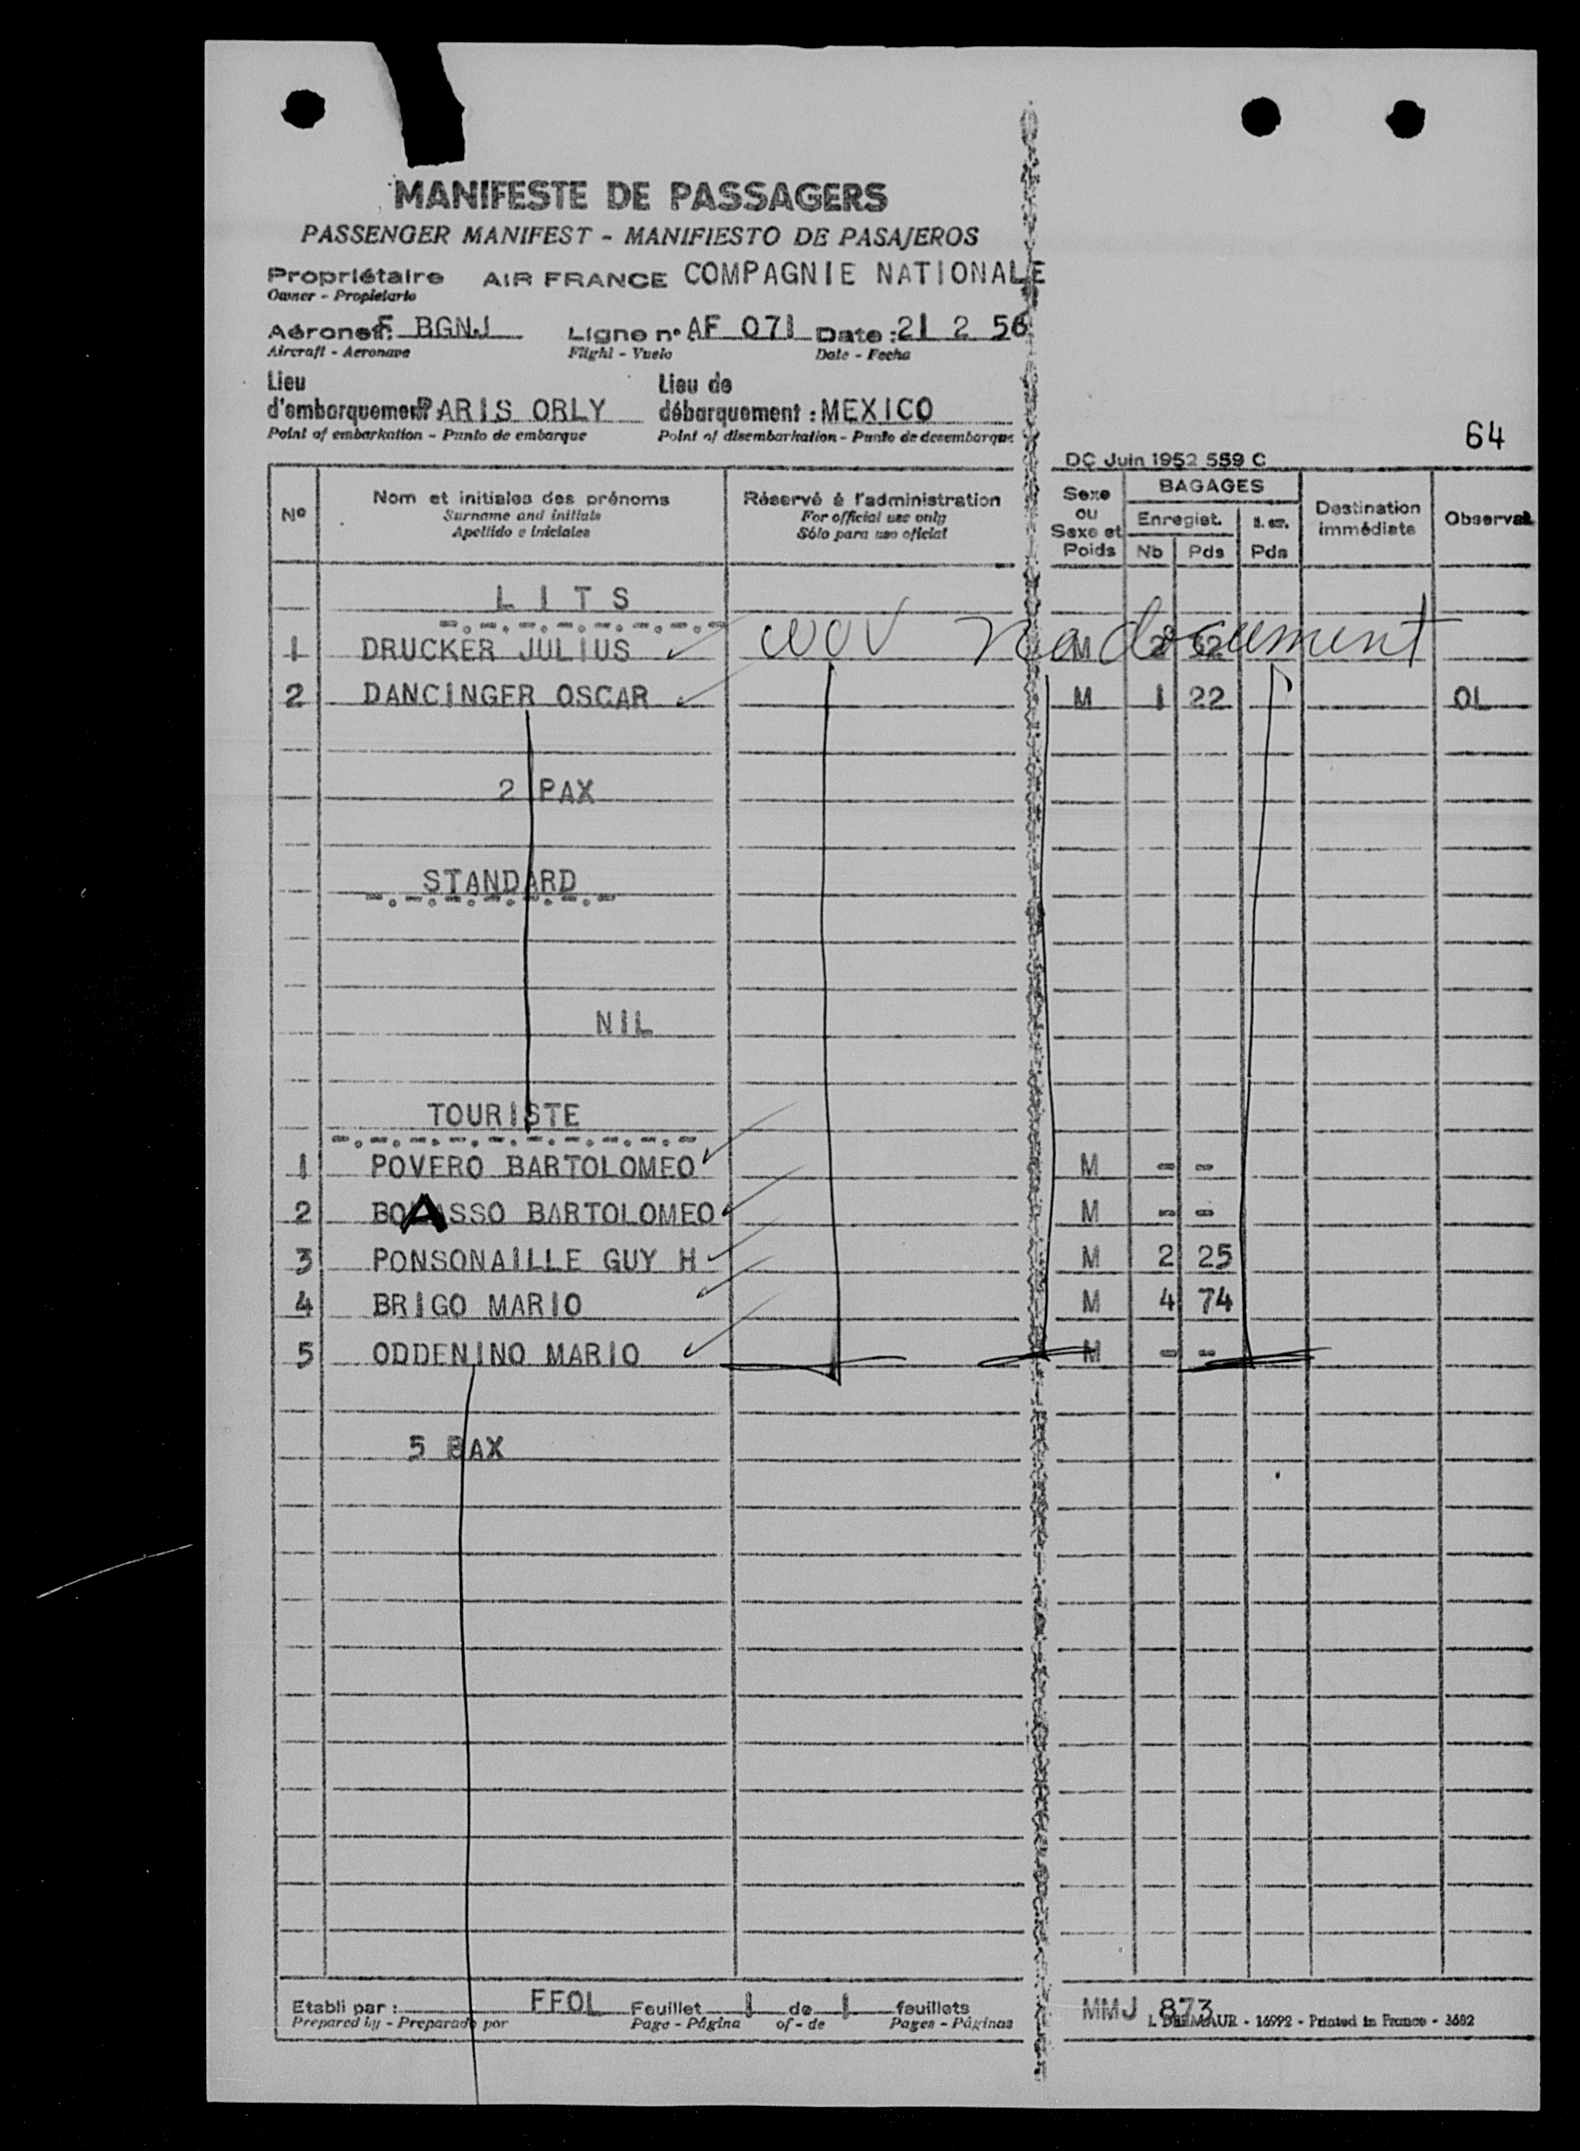 MANIFESTE DE PASSAGERS
PASSENGER MANIFEST - MANIFIESTO DE PASAJEROS
Propriétaire AIR FRANCE COMPAGNIE NATIONALE
Owner - Propietario
Aéronef: F BGNJ Ligne n° AF 071 Date : 21 2 56
Aircraft - Aeronave Flight - Vuelo Date - Fecha
Lieu d'embarquement : PARIS ORLY Lieu de débarquement : MEXICO
Point of embarkation - Punto de embarque Point of disembarkation - Punto de desembarque
64
DC Juin 1952 559 C
N° Nom et initiales des prénoms Réservé à l'administration Sexe ou Sexe et Poids BAGAGES Destination immédiate Observat.
Surname and initials For official use only Enregist.
Apellido e iniciales Sólo para uso oficial Nb Pds Pds
L I T S
1 DRUCKER JULIUS WOV no document M 2
2 DANCINGER OSCAR M 1 22 OL
2 PAX
STANDARD
NIL
TOURISTE
1 POVERO BARTOLOMEO M - -
2 BO ASSO BARTOLOMEO M - -
3 PONSONAILLE GUY H M 2 25
4 BRIGO MARIO M 4 74
5 ODDENINO MARIO M - -
5 PAX
Etabli par : FFOL Feuillet 1 de 1 feuillets MMJ 873
Prepared by - Preparado por Page - Página of - de Pages - Páginas - 16992 - Printed in France - 3682